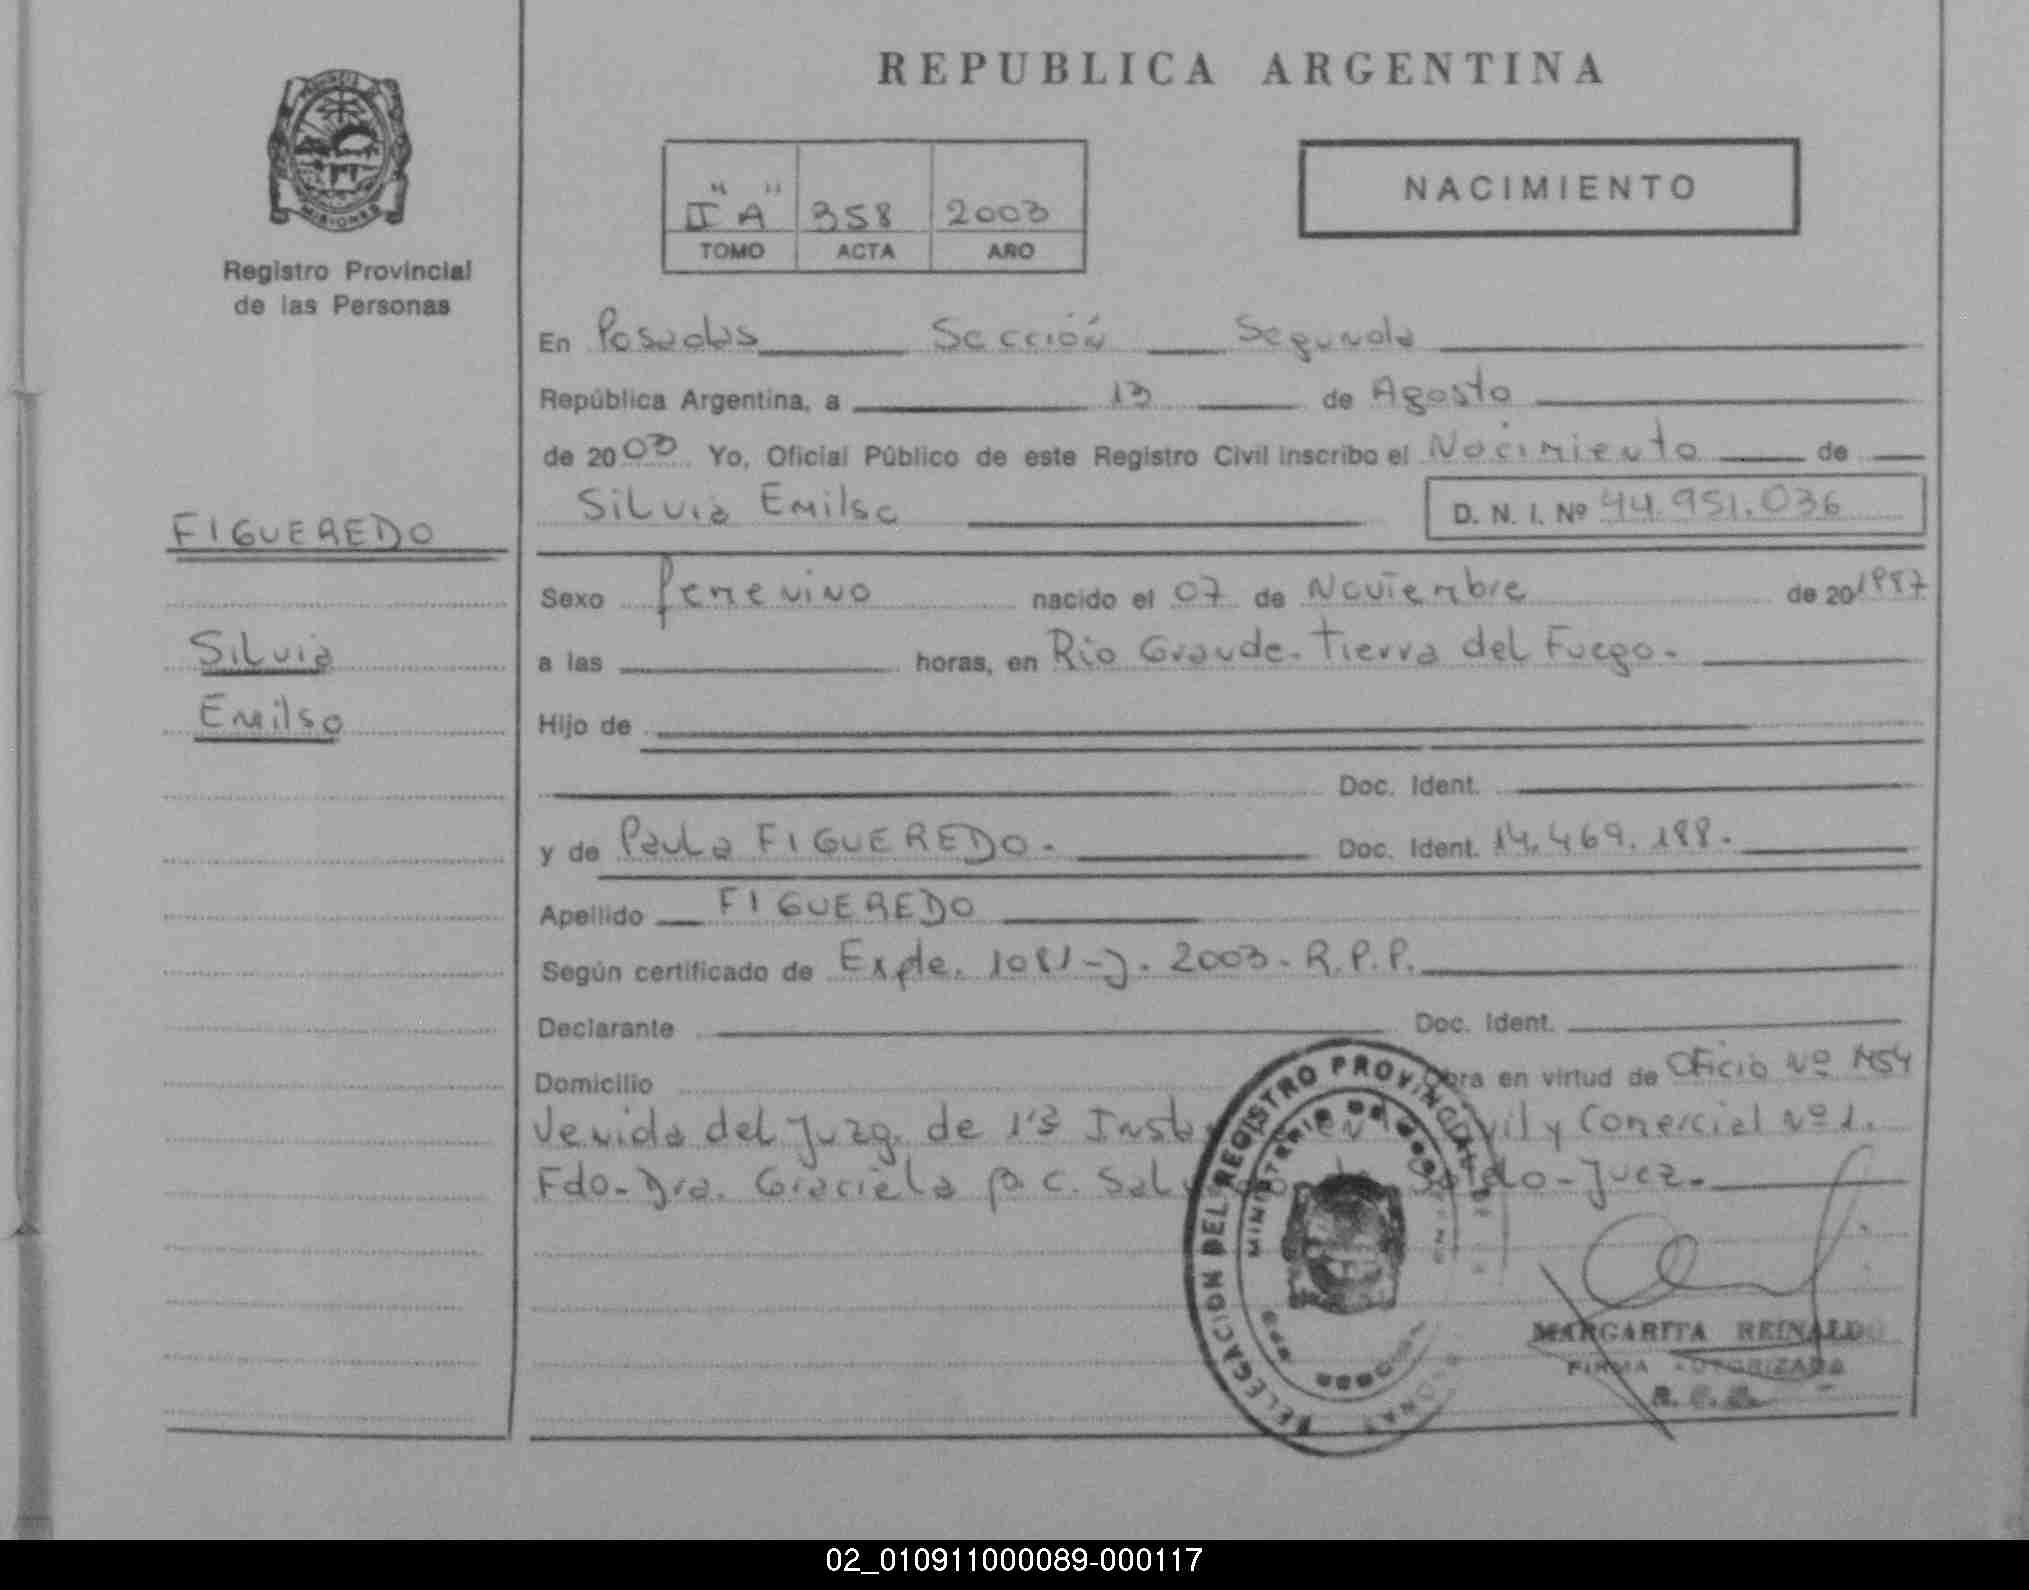 REPUBLICA ARGENTINA
MISIONES
Registro Provincial
de las Personas
"II A" 358 2003
TOMO ACTA AÑO
NACIMIENTO
En Posadas Sección Segunda
República Argentina, a 13 de Agosto
de 2003 Yo, Oficial Público de este Registro Civil inscribo el Nacimiento de
Silvia Emilse D. N. I. Nº 44.951.036
FIGUEREDO
Silvia
Emilse
Sexo femenino nacido el 07 de Noviembre de 20 1987
a las horas, en Rio Grande. Tierra del Fuego.
Hijo de
Doc. Ident.
y de Paula FIGUEREDO. Doc. Ident. 14.469.188.
Apellido FIGUEREDO
Según certificado de Expte. 1081-J. 2003. R.P.P.
Declarante Doc. Ident.
Domicilio Obra en virtud de Oficio Nº 1454
Venida del Juzg. de 1ra Inst. en Civil y Comercial Nº 1.
Fdo. Dra. Graciela B. C. Juez.
DELEGACION DEL REGISTRO PROVINCIAL DE
MINISTERIO DE GOBIERNO
MISIONES
MARGARITA REINALDO
FIRMA AUTORIZADA
02_010911000089-000117